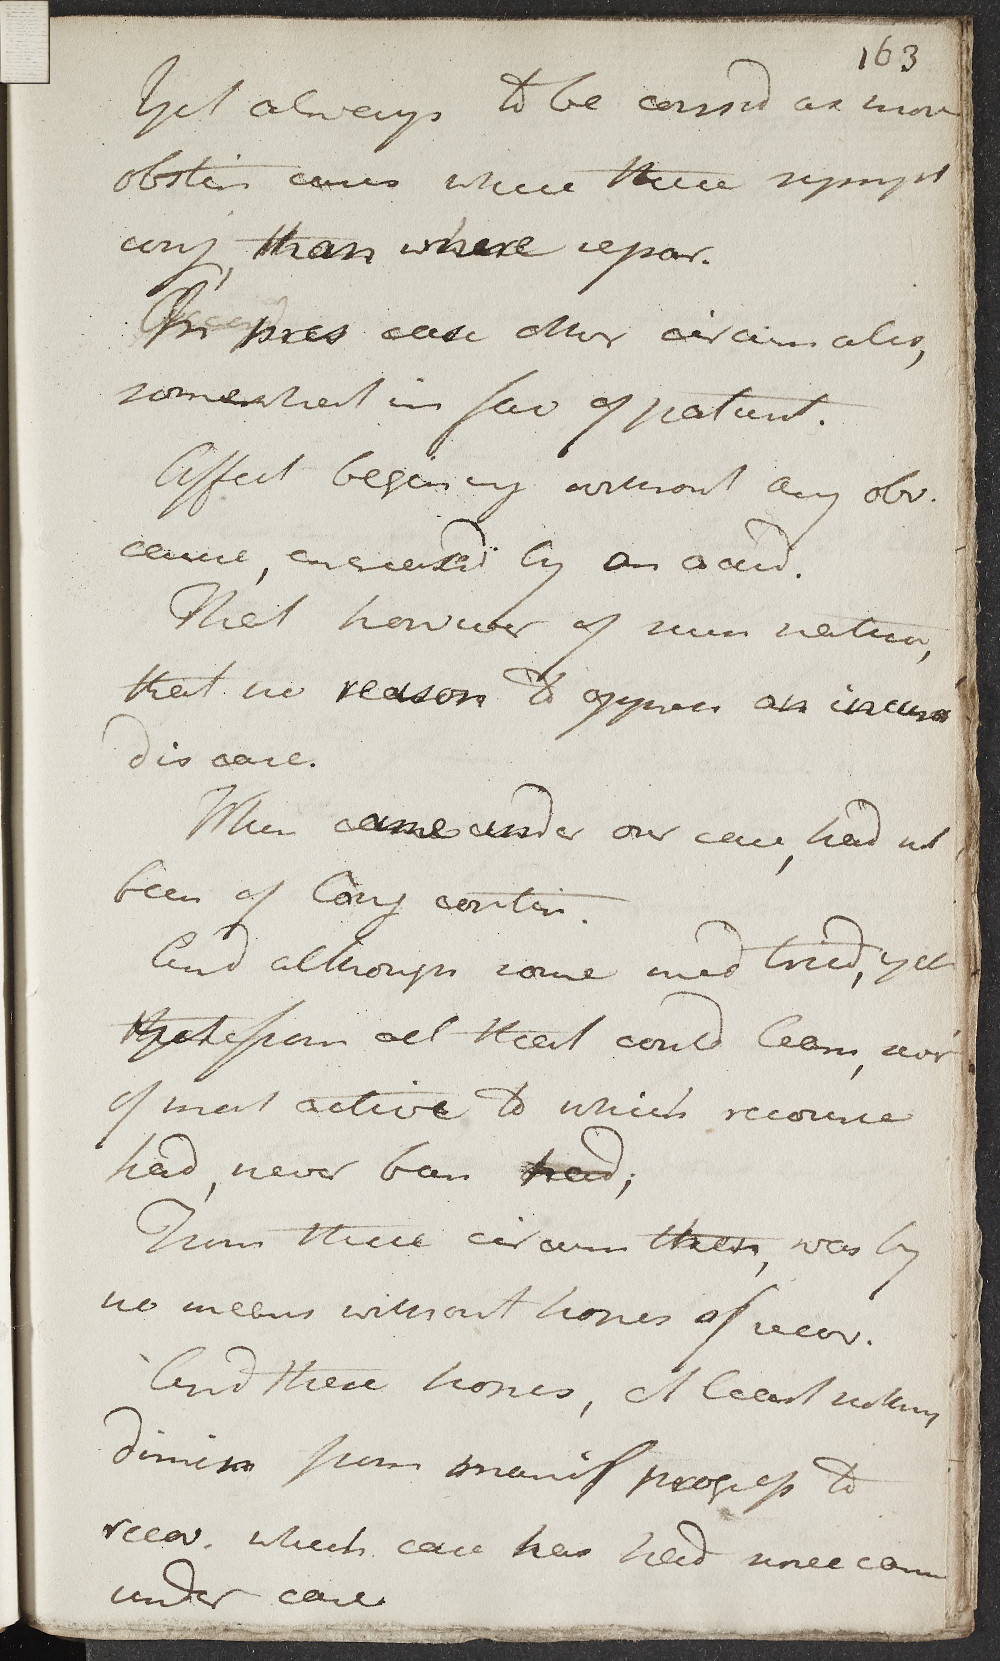 163
Yet always to be consid as more
obstin cases where these sympt
conj, than where separ.
In pres case other circum also,
somewhat in fav of patient.
Affect begining without any obv.
cause, encreas'd by an accid.
That however of such nature,
that no reason to appreh an incura
disease.
When came under our care, had not
been of long contin.
And although some med tried, yet
from all that could learn, nor
of most active to which recourse
had, never been had;
From these circum then, was by
no means without hopes of recov.
And these hopes, at least nothing
dimin from manif progress to
recov. which case has had since came
under care